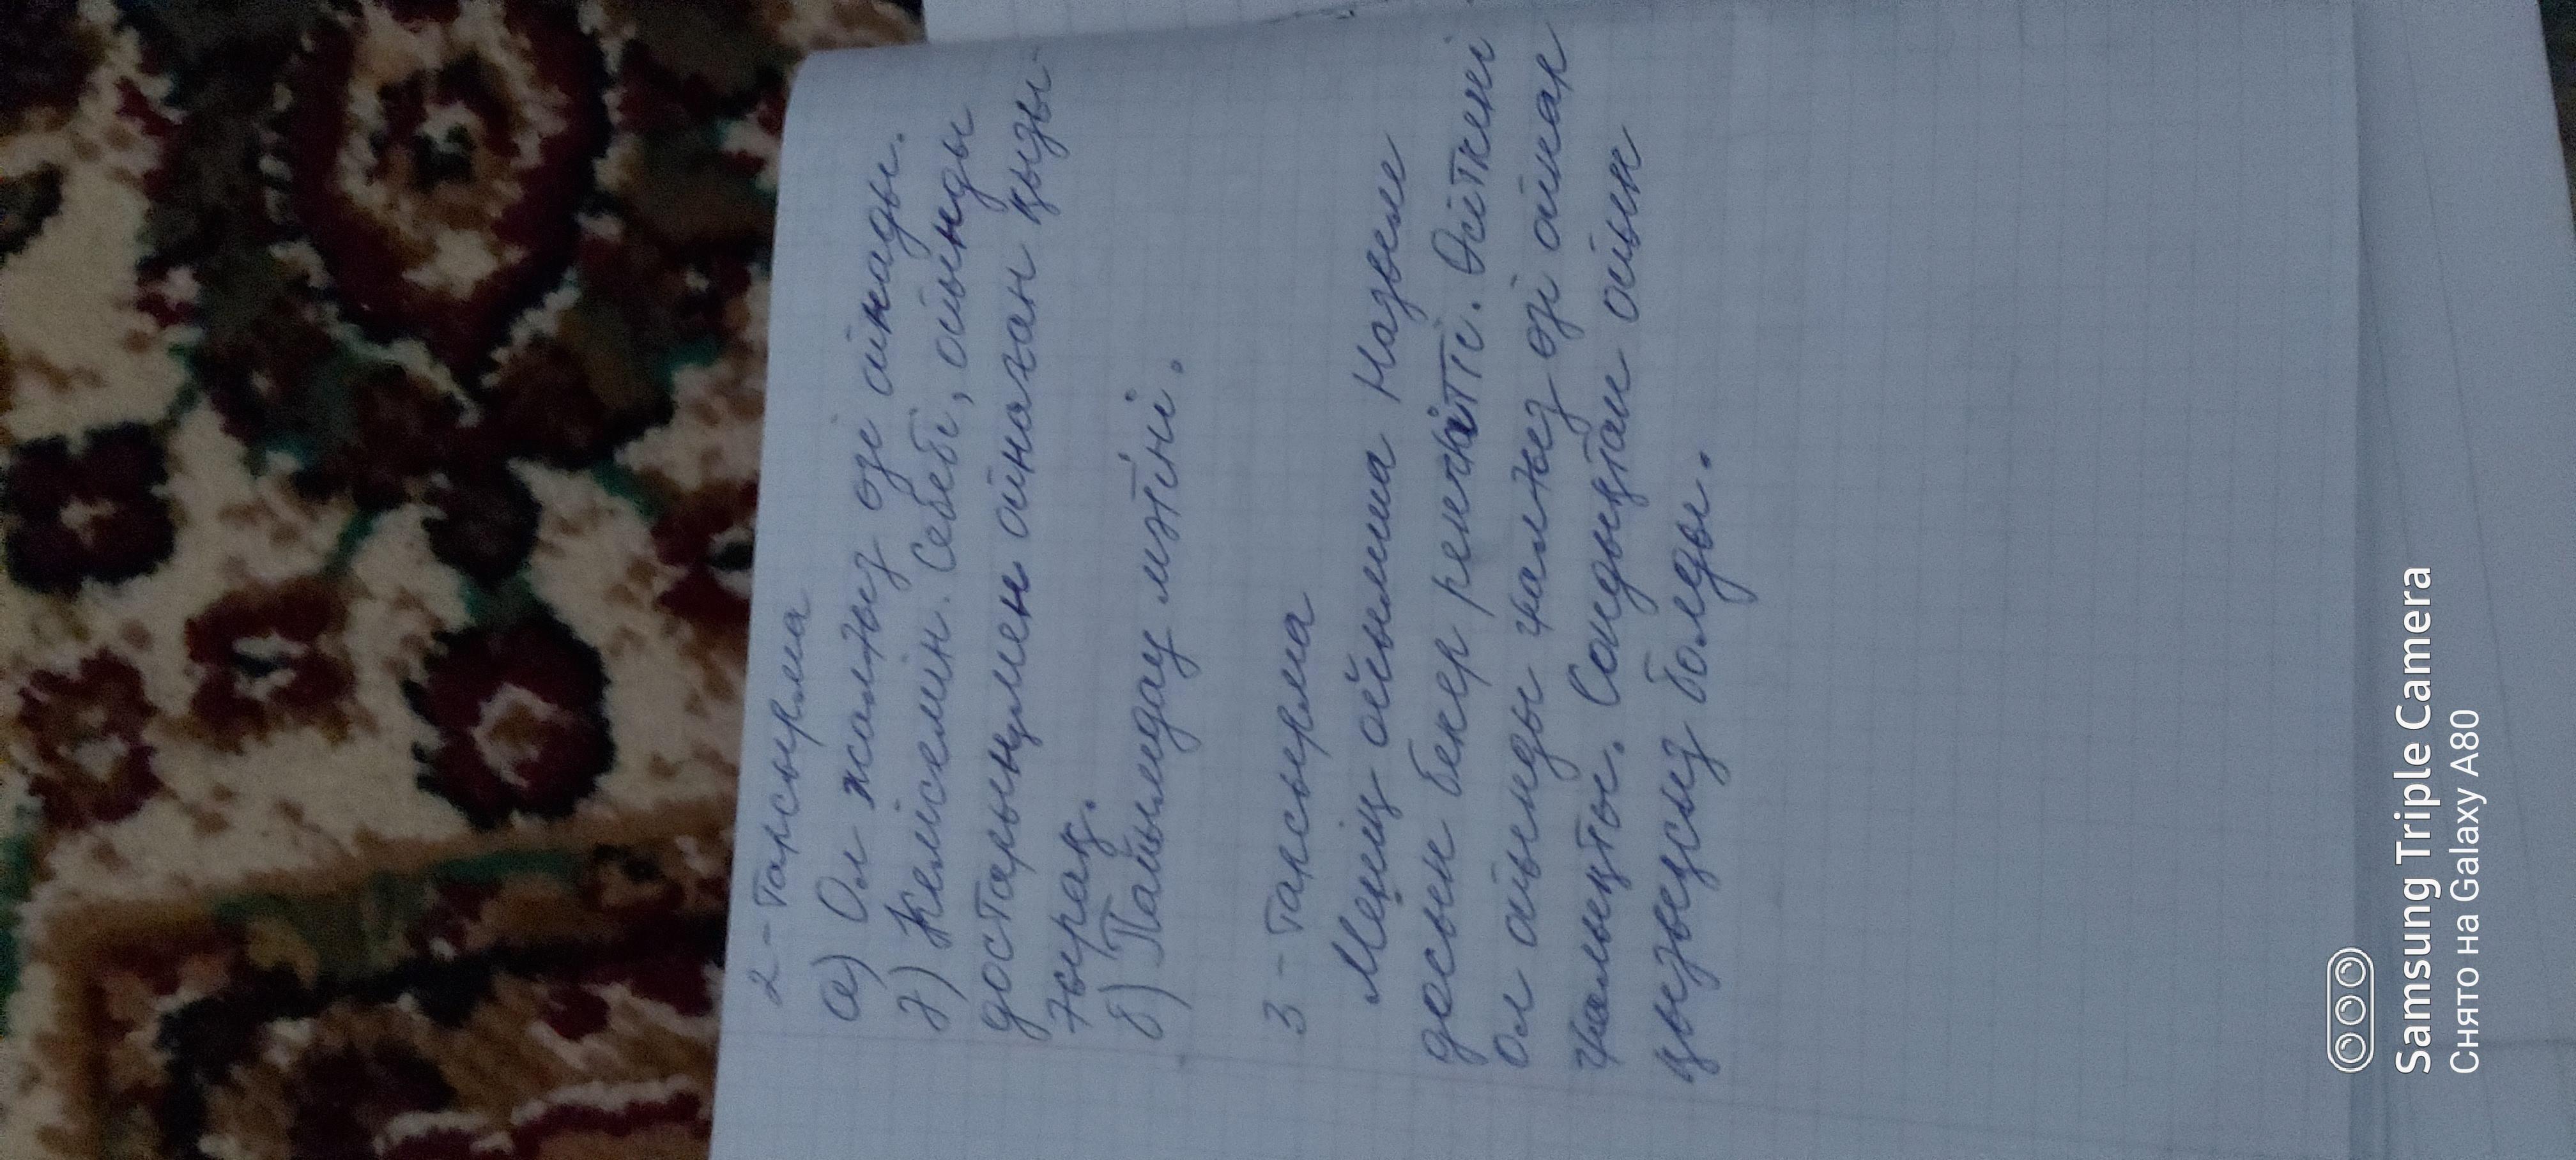 2-тапсырма
а) Ол жалғыз өзі ойнады.
ә) Келісемін. Себебі, ойынды
достарыңмен ойнаған қызы-
ғырақ.
б) Пайымдау мәтіні.
3-тапсырма
Менің ойымша Назым
досын бекер ренжітті. Өйткені
ол ойынды жалғыз өзі ойнап
қалыпты. Сондықтан ойын
қызықсыз болды.
Samsung Triple Camera
Снято на Galaxy A80